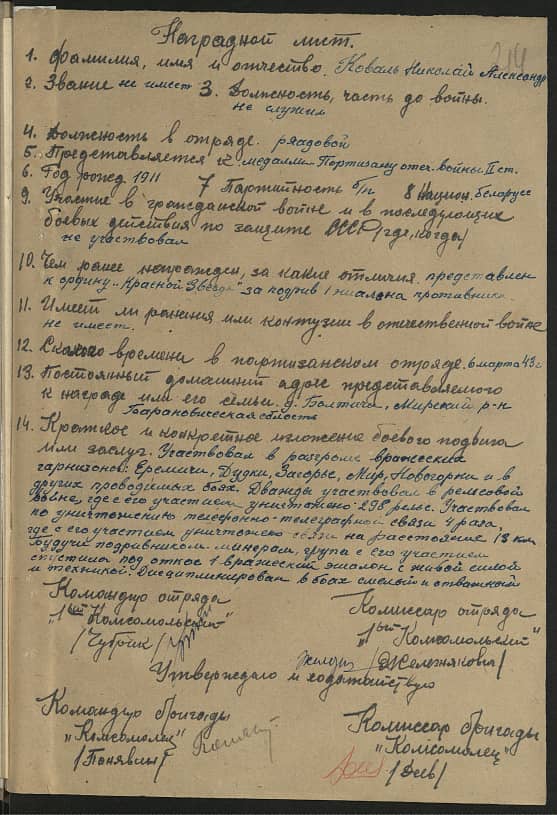 214
Наградной лист.
1. Фамилия, имя и отчество. Коваль Николай Александр
2. Звание не имеет 3. Должность, часть до войны.
не служил
4. Должность в отряде. рядовой
5. Представляется к медали "Партизану отеч. войны II ст.
6. Год рожд 1911
7 Партийность б/п 8 Национ. белорусс
9. Участие в гражданской войне и в последующих
боевых действия по защите СССР/где, когда/
не участвовал
10. Чем ранее награжден, за какие отличия. представлен
к ордину "Красной Звезды" за подрыв 1 эшалона противника
11. Имеет ли ранения или контузии в отечественной войне
не имеет.
12. Сколько времени в партизанском отряде. 6 марта 43 г
13. Постоянный домашний адрес представляемого
к награде или его семьи. д. Полтичи, Мирский р-н
Бароновическая область
14. Краткое и конкретное изложение боевого подвига
или заслуг. Участвовал в разгроме вражеских
гарнизонов: Еремичи, Дудки, Загорье, Мир, Новогорки и в
других проводимых боях. Дважды участвовал в рельсовой
войне, где с его участием уничтожено 298 рельс. Участвовал
по уничтожению телефонно-телеграфной связи 4 раза,
где с его участием уничтожено связи на расстояние 13 км
Будучи подрывником-минером, група с его участием
спустила под откос 1 вражеский эшалон с живой силой
и техникой. Дисциплинирован в боях смелый и отважный
Командир отряда
"1ый Комсомольский"
/Чубрик/
Комиссар отряда
"1ый Комсомольский"
/Железнякович/
Утверждаю и ходатайствую
Командир бригады
"Комсомолец"
Комиссар бригады
"Комсомолец"
/Деев/